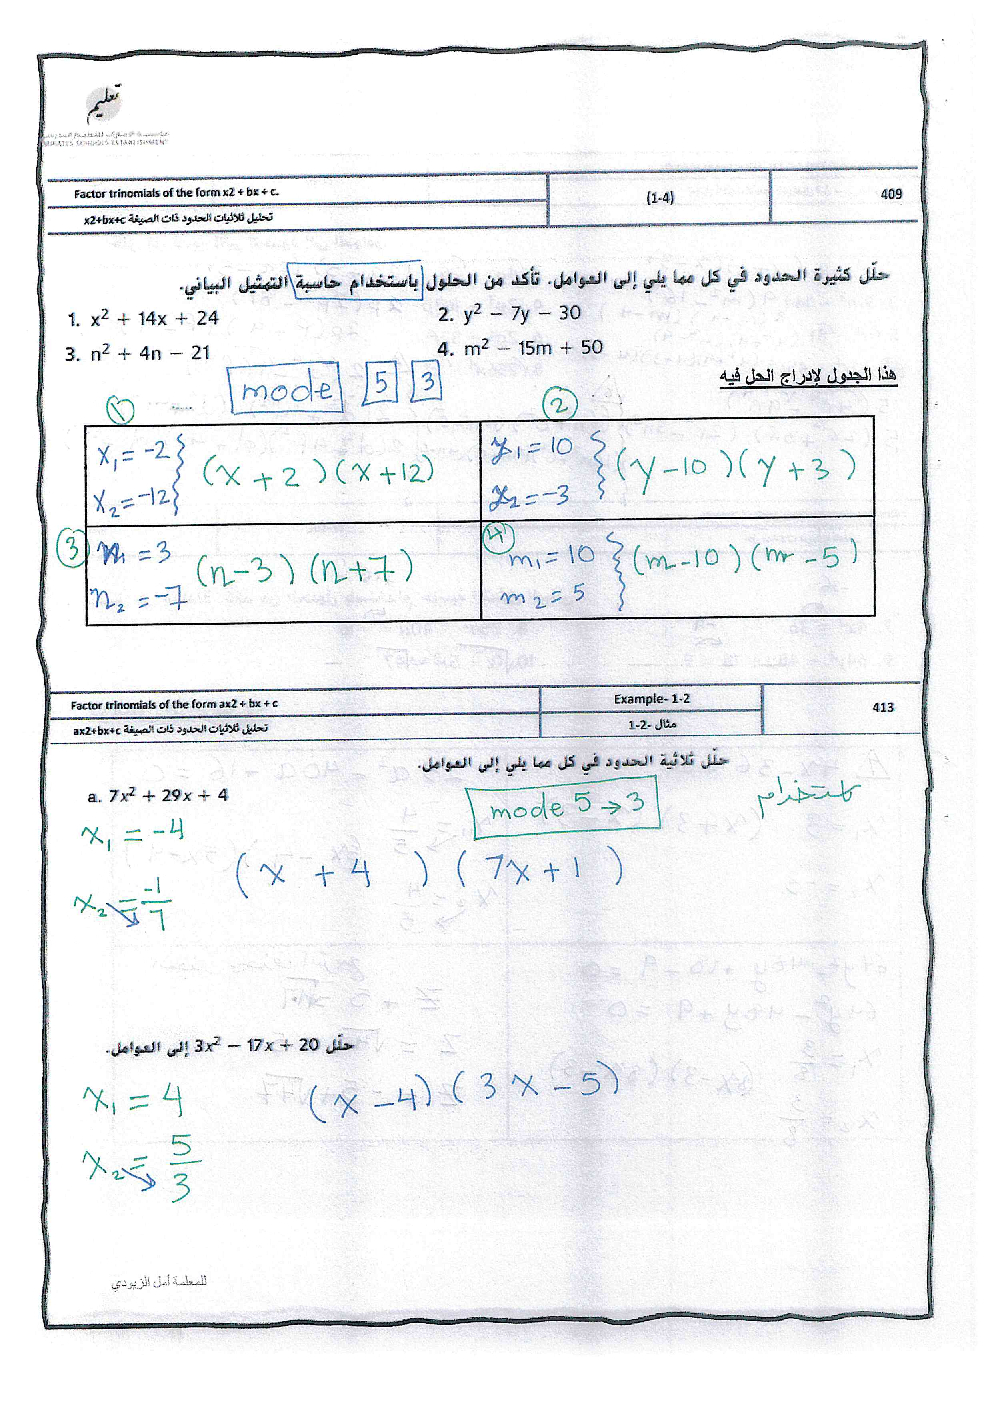 تعليم
مؤسسة الإمارات للتعليم المدرسي
EMIRATES SCHOOLS ESTABLISHMENT
Factor trinomials of the form x2 + bx + c. (1-4) 409
تحليل ثلاثيات الحدود ذات الصيغة x2+bx+c
حلّل كثيرة الحدود في كل مما يلي إلى العوامل. تأكد من الحلول باستخدام حاسبة التمثيل البياني.
1. x² + 14x + 24 2. y² − 7y − 30
3. n² + 4n − 21 4. m² − 15m + 50
هذا الجدول لإدراج الحل فيه
mode 5 3
① ②
x₁ = -2 (x + 2)(x + 12) y₁ = 10 (y - 10)(y + 3)
x₂ = -12 y₂ = -3
③ n₁ = 3 (n - 3)(n + 7) ④ m₁ = 10 (m - 10)(m - 5)
n₂ = -7 m₂ = 5
Factor trinomials of the form ax2 + bx + c Example- 1-2 413
تحليل ثلاثيات الحدود ذات الصيغة ax2+bx+c مثال -2-1
حلّل ثلاثية الحدود في كل مما يلي إلى العوامل.
a. 7x² + 29x + 4 mode 5 → 3 باستخدام
x₁ = -4
(x + 4)(7x + 1)
x₂ = -1/7
حلّل 3x² − 17x + 20 إلى العوامل.
x₁ = 4 (x - 4)(3x - 5)
x₂ = 5/3
للمعلمة أمل الزيودي